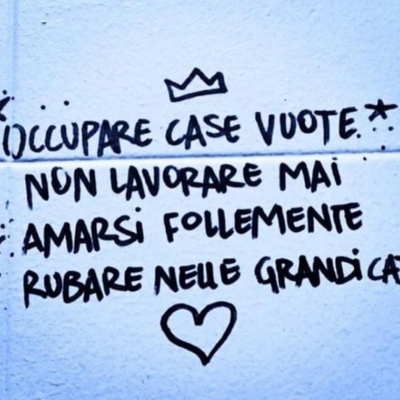 OCCUPARE CASE VUOTE
NON LAVORARE MAI
AMARSi FOLLEMENTE
RUBARE NELLE GRANDi